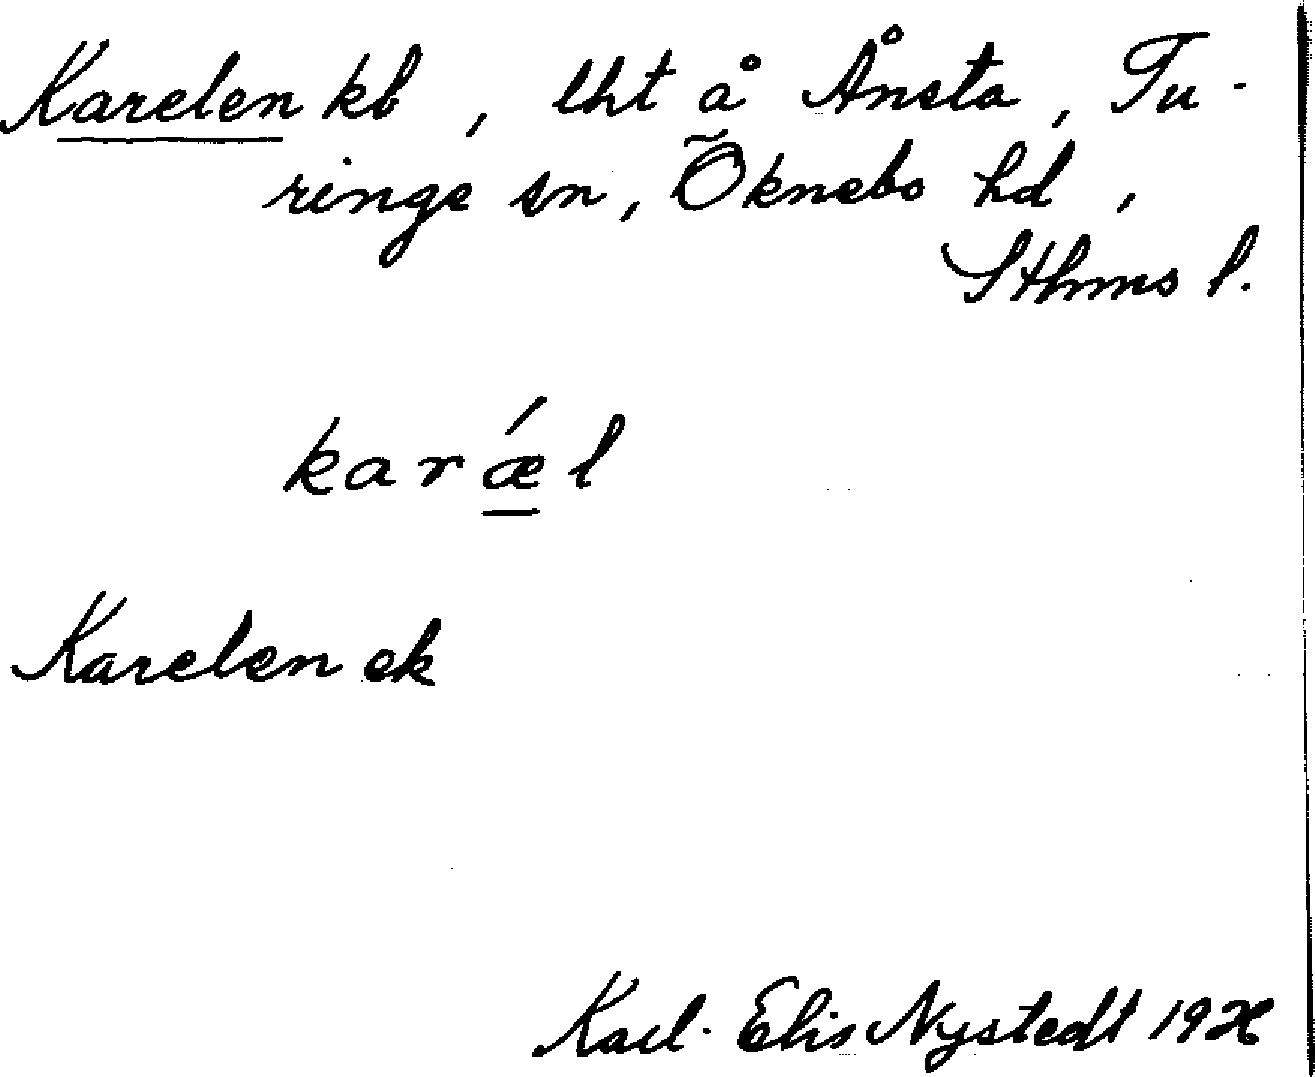 Karelen kb, lht å Ånsta, Tu-
ringe sn, Öknebo hd,
Sthms l.
karǽl
Karelen ek
Karl-Elis Nystedt